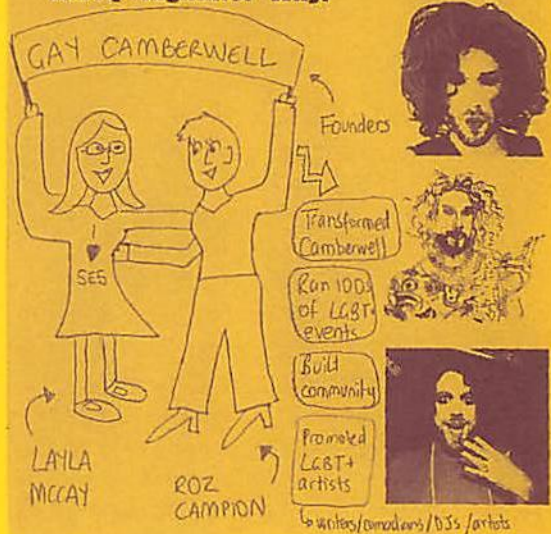 GAY CAMBERWELL
Founders
I
♥
SE5
Transformed
Camberwell
Ran 100s
of LGBT+
events
Built
community
Promoted
LGBT+
artists
↳ writers/comedians/DJs/artists
LAYLA
MCCAY
ROZ
CAMPION